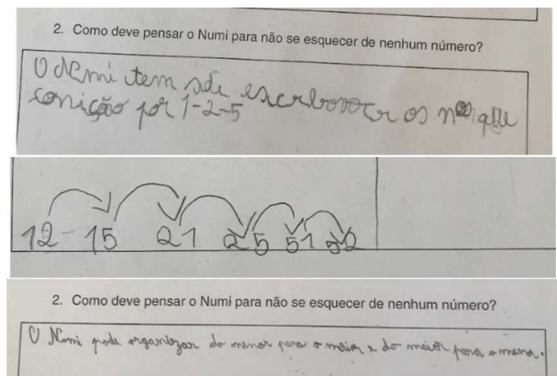 2. Como deve pensar o Numi para não se esquecer de nenhum número?
O Numi tem de os nos que
começão por 1-2-5
12 - 15 21 25 51 52
2. Como deve pensar o Numi para não se esquecer de nenhum número?
O Numi pode organizar do menor para o maior e do maior para o menor.